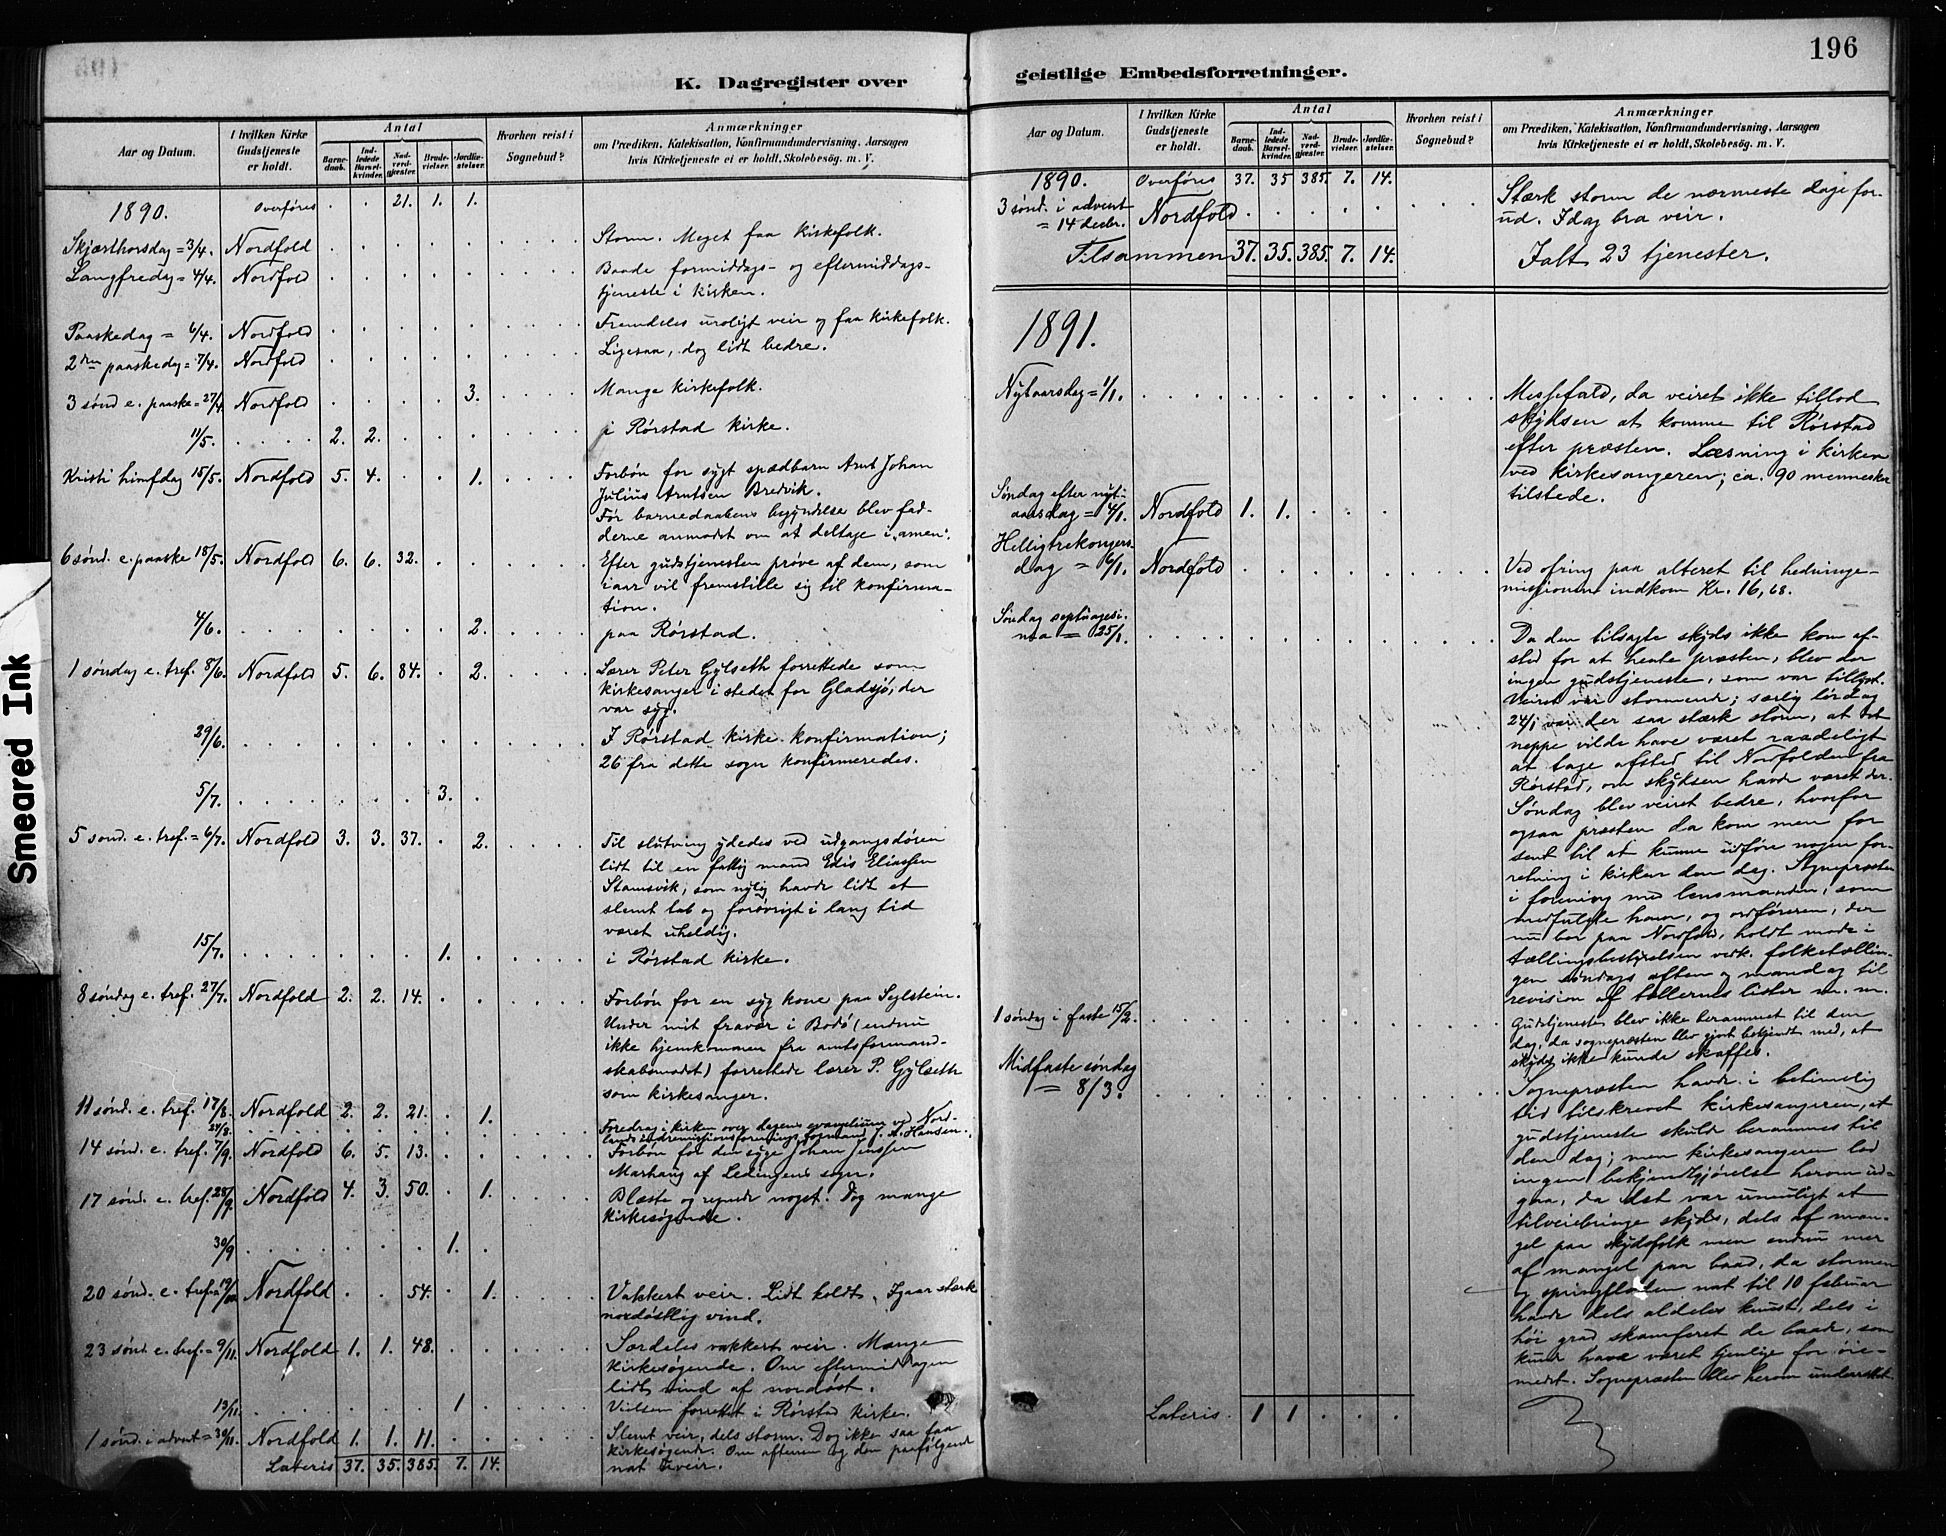 196
K. Dagregister over
geistlige Embedsforretninger.
Smeared Ink
Aar og Datum. I hvilken Kirke Gudstjeneste er holdt. Antal Barnedaab. Indledede Barselkvinder. Nadverdgjæster. Brudevielser. Jordfæstelser. Hvorhen reist i Sognebud?
Anmærkninger
om Prædiken, Katekisation, Konfirmandundervisning, Aarsagen
hvis Kirketjeneste ei er holdt, Skolebesøg. m. V.
1890. Overføres . . 21. 1. 1.
Skjærthorsdag = 3/4. Nordfold Storm. Meget faa kirkefolk.
Langfredag = 4/4. Nordfold Baade formiddags- og eftermiddags-
tjeneste i kirken.
Paaskedag = 6/4. Nordfold Fremdeles uroligt veir og faa kirkefolk.
2den paaskedag = 7/4. Nordfold Ligesaa, dog lidt bedre.
3 sønd e. paaske = 27/4 Nordfold 3. Mange kirkefolk.
11/5. 2. 2. i Rørstad kirke.
Kristi himfdag 15/5. Nordfold 5. 4. . . 1. Forbøn for sygt spædbarn Arnt Johan
Julius Arntsen Bredvik.
Før barnedaabens begyndelse blev fad-
derne anmodet om at deltage i "amen".
6 sønd. e. paaske 18/5. Nordfold 6. 6. 32. Efter gudstjenesten prøve af dem, som
iaar vil fremstille sig til konfirma-
tion.
4/6. 2. paa Rørstad.
1 søndag e. tref. 8/6. Nordfold 5. 6. 84. . 2. Lærer Peter Gylseth forrettede som
kirkesanger i stedet for Gladsjø, der
var syg.
29/6. I Rørstad kirke konfirmation;
26 fra dette sogn konfirmeredes.
5/7. 3.
5 sønd. e. tref. = 6/7. Nordfold 3. 3. 37. . 2. Til slutning ydedes ved udgangsdøren
lidt til en fattig mand Edis Eliassen
Stamsvik, som nylig havde lidt et
slemt tab og forøvrigt i lang tid
været uheldig.
15/7. 1. i Rørstad kirke.
8 søndag e. tref. 27/7. Nordfold 2. 2. 14. Forbøn for en syg kone paa Seglstein.
Under mit fravær i Bodø (endnu
ikke hjemkommen fra amtsformand-
skabsmødet) forrettede lærer P. Gylseth
som kirkesanger.
11 sønd. e. tref. 17/8. Nordfold 2. 2. 21. . 1.
24/8. Foredrag i kirken over dagens evangelium ved Nord-
lands indremissionsforenings formand J. A. Hansen.
14 sønd. e. tref. 7/9. Nordfold 6. 5. 13. Forbøn for den syge Johan Jenssen
Marhaug af Ledingens sogn.
17 sønd. e. tref. 28/9. Nordfold 4. 3. 50. . 1. Blæste og regnede noget. Dog mange
kirkesøgende.
30/9 1.
20 sønd. e. tref. = 19/10 Nordfold . . 54. . 1. Vakkert veir. Lidt koldt. Igaar stærk
nordøstlig vind.
23 sønd. e. tref. = 9/11. Nordfold 1. 1. 48. Særdeles vakkert veir. Mange
kirkesøgende. Om eftermiddagen
lidt vind af nordøst.
13/11. 1 Vielsen forrettet i Rørstad kirke.
1 sønd. i advent = 30/11. Nordfold 1. 1. 11. Slemt veir, dels storm. Dog ikke saa faa
kirkesøgende. Om aftenen og den paafølgende
nat uveir.
Lateris 37. 35. 385. 7. 14.
Aar og Datum. I hvilken Kirke Gudstjeneste er holdt. Antal Barnedaab. Indledede Barselkvinder. Nadverdgjæster. Brudevielser. Jordfæstelser. Hvorhen reist i Sognebud?
Anmærkninger
om Prædiken, Katekisation, Konfirmandundervisning, Aarsagen
hvis Kirketjeneste ei er holdt, Skolebesøg. m. V.
1890. Overføres 37. 35 385. 7. 14.
3 sønd. i advent
= 14 decbr. Nordfold Stærk storm de nærmeste dage for-
ud. Idag bra veir.
Tilsammen 37. 35. 385. 7. 14. Ialt 23 tjenester.
1891.
Nytaarsdag = 1/1. Messefald, da veiret ikke tillod
skydsen at komme til Rørstad
efter præsten. Læsning i kirken
ved kirkesangeren; ca. 90 mennesker
tilstede.
Søndag efter nyt-
aarsdag = 4/1. Nordfold 1. 1.
Helligtrekongers-
dag = 6/1. Nordfold Ved ofring paa alteret til hedninge-
missionen indkom Kr. 16,68.
Søndag septuagesi-
ma = 25/1. Da den tilsagte skyds ikke kom af-
sted for at hente præsten, blev der
ingen gudstjeneste, som var tillyst.
Veiret var stormende; særlig lørdag
24/1 var der saa stærk storm, at det
neppe vilde have været raadeligt
at tage afsted til Nordfolden fra
Rørstad, om skydsen havde været der.
Søndag blev veiret bedre, hvorfor
ogsaa præsten da kom men for
sent til at kunne udføre nogen for-
retning i kirken den dag. Sognepræsten
i forening med lensmanden, som
medfulgte ham, og ordføreren, der
nu bor paa Nordfold, holdt møde i
tællingsbestyrelsen vedk. folketællin-
gen søndags aften og mandag til
revision af tællernes lister m. m.
1 søndag i faste 15/2. Gudstjeneste blev ikke berammet til den
dag, da sognepræsten blev gjort bekjendt med, at
skyds ikke kunde skaffes.
Midfaste søndag
= 8/3. Sognepræsten havde i betimelig
tid tilskrevet kirkesangeren, at
gudstjeneste skulde berammes til
den dag; men kirkesangeren lod
ingen bekjendtgjørelse herom ud-
gaa, da det var umuligt at
tilveiebringe skyds, dels af man-
gel paa skydsfolk men endnu mer
af mangel paa baad, da stormen
og springfloden nat til 10 februar
havde dels aldeles knust, dels i
høi grad skamferet de baade, som
kunde have været tjenlige for øie-
medet. Sognepræsten blev herom underrettet
Lateris. 1 1